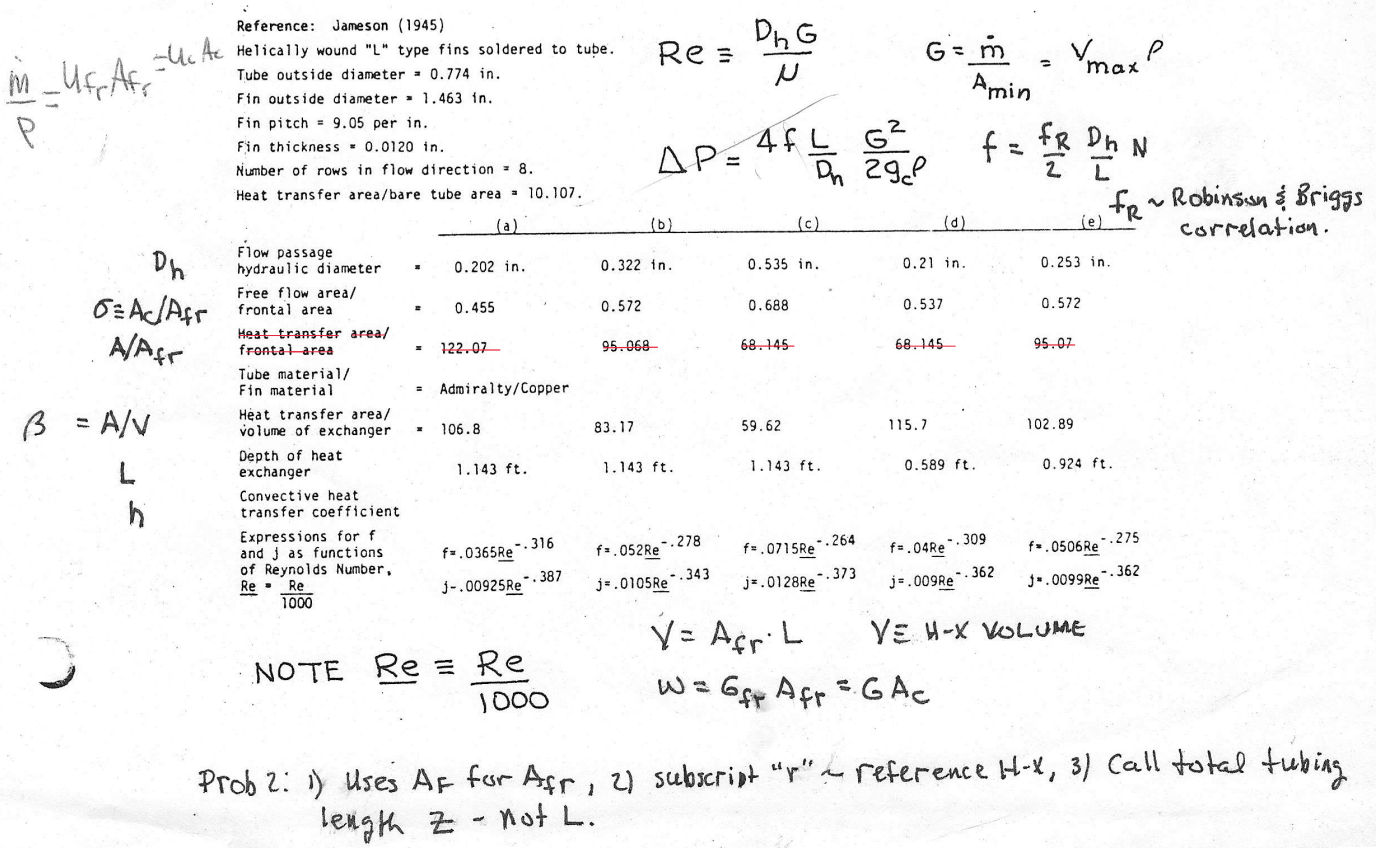 Reference: Jameson (1945)
Helically wound "L" type fins soldered to tube.
Tube outside diameter = 0.774 in.
Fin outside diameter = 1.463 in.
Fin pitch = 9.05 per in.
Fin thickness = 0.0120 in.
Number of rows in flow direction = 8.
Heat transfer area/bare tube area = 10.107.
ṁ/ρ = Ufr Afr = Uc Ac
Re ≡ DhG/μ
G = ṁ/Amin = Vmax ρ
ΔP = 4f L/Dh G²/2gcρ
f = fR/2 Dh/L N
fR ~ Robinson & Briggs
correlation.
(a) (b) (c) (d) (e)
Dh Flow passage
hydraulic diameter = 0.202 in. 0.322 in. 0.535 in. 0.21 in. 0.253 in.
σ≡Ac/Afr Free flow area/
frontal area = 0.455 0.572 0.688 0.537 0.572
A/Afr Heat transfer area/
frontal area = 122.07 95.068 68.145 68.145 95.07
Tube material/
Fin material = Admiralty/Copper
β = A/V Heat transfer area/
volume of exchanger = 106.8 83.17 59.62 115.7 102.89
L Depth of heat
exchanger 1.143 ft. 1.143 ft. 1.143 ft. 0.589 ft. 0.924 ft.
h Convective heat
transfer coefficient
Expressions for f
and j as functions
of Reynolds Number,
Re = Re/1000
f=.0365Re-.316 f=.052Re-.278 f=.0715Re-.264 f=.04Re-.309 f=.0506Re-.275
j-.00925Re-.387 j=.0105Re-.343 j=.0128Re-.373 j=.009Re-.362 j=.0099Re-.362
V = Afr · L V≡ H-X VOLUME
NOTE Re ≡ Re/1000
W = Gfr Afr = G Ac
Prob 2: 1) Uses AF for Afr, 2) subscript "r" ~ reference H-X, 3) Call total tubing
length Z - not L.